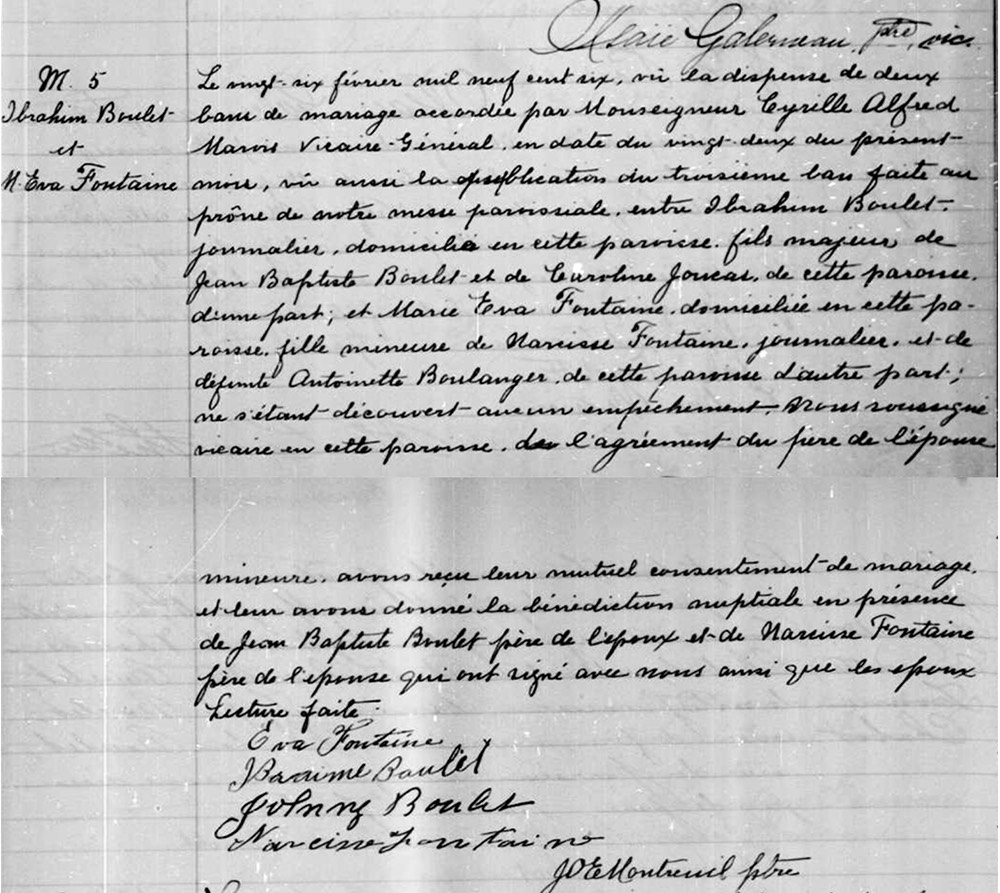 Galerneau, ptre, vic.
M. 5
Ibrahim Boulet
et
M. Eva Fontaine
Le vingt-six février mil neuf cent six, vu la dispense de deux
bans de mariage accordée par Monseigneur Cyrille Alfred
Marois Vicaire-Général, en date du vingt-deux du présent
mois, vu aussi la publication du troisième ban faite au
prône de notre messe paroissiale, entre Ibrahim Boulet,
journalier, domicilié en cette paroisse, fils majeur de
Jean Baptiste Boulet et de Caroline Joncas, de cette paroisse,
d'une part; et Marie Eva Fontaine, domiciliée en cette pa-
roisse, fille mineure de Narcisse Fontaine, journalier, et de
défunte Antoinette Boulanger, de cette paroisse d'autre part;
ne s'étant découvert aucun empêchement, Nous soussigné
vicaire en cette paroisse, de l'agrément du père de l'épouse
mineure, avons reçu leur mutuel consentement de mariage,
et leur avons donné la bénédiction nuptiale en présence
de Jean Baptiste Boulet père de l'époux et de Narcisse Fontaine
père de l'épouse qui ont signé avec nous ainsi que les époux
Lecture faite.
Eva Fontaine
Ibraime Boulet
Johnny Boulet
Narcisse Fontaine
JOEMontreuil ptre